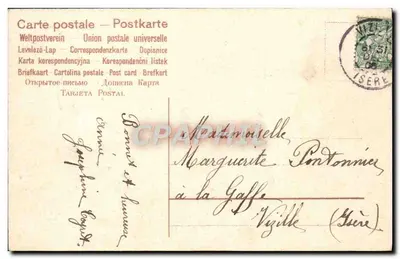 Carte postale – Postkarte
Weltpostverein – Union postale universelle
Levelező-Lap – Correspondenzkarte – Dopisnice
Karta korespondencyjna – Korespondenční lístek
Briefkaart – Cartolina postale – Post card – Brefkort
Открытое письмо – Дописна Карта
Tarjeta Postal
VIZILLE
ISÈRE
Mademoiselle
Marguerite Pontonnier
à la Gaffe
Vizille (Isère)
Bonne et heureuse
année
Joséphine